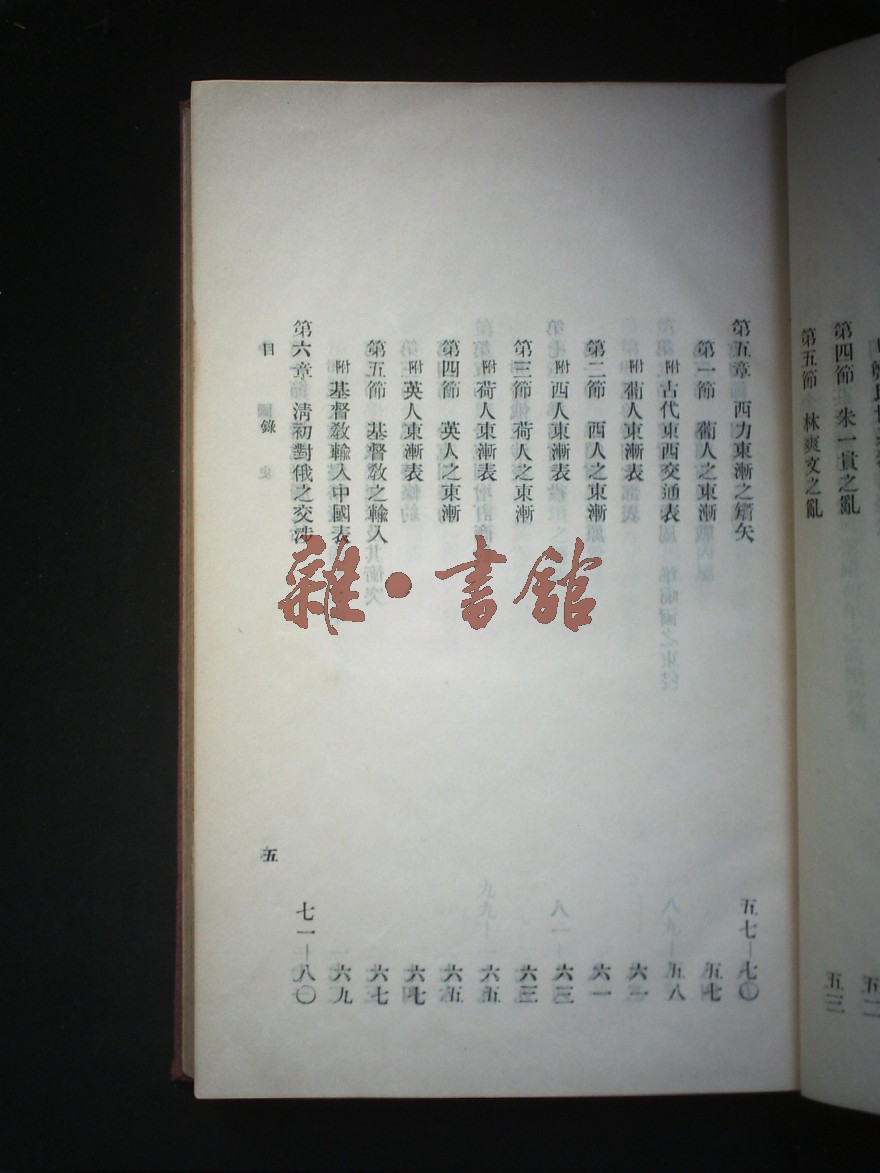 第四節 朱一貴之亂 五二
第五節 林爽文之亂 五三
第五章 西力東漸之嚆矢 五七—七〇
第一節 葡人之東漸 五七
附 古代東西交通表 五八
附 葡人東漸表 六一
第二節 西人之東漸 六一
附 西人東漸表 六三
第三節 荷人之東漸 六三
附 荷人東漸表 六五
第四節 英人之東漸 六五
附 英人東漸表 六七
第五節 基督教之輸入 六七
附 基督教輸入中國表 六九
第六章 清初對俄之交涉 七一—八〇
目錄 五
雜·書館